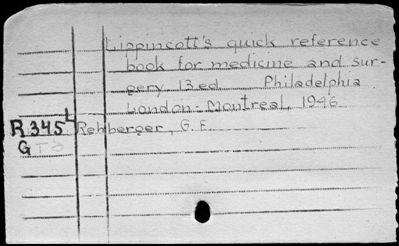 Lippincott's quick reference
book for medicine and sur-
gery 13 ed Philadelphia
London-Montreal, 1946
L
R345 Rehberger, G. E.
G